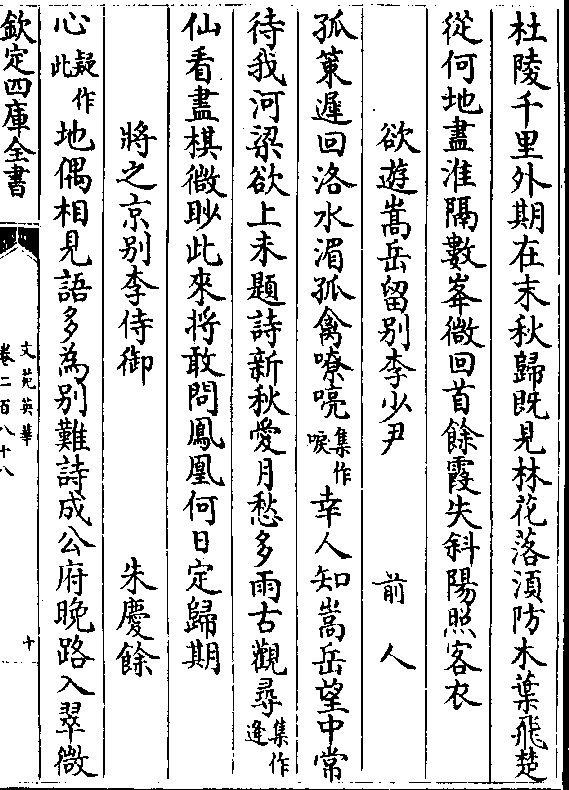 杜陵千里外期在末秋歸既見林花落須防木葉飛楚
從何地盡淮隔數峯微回首餘霞失斜陽照客衣
欲遊嵩岳留別李少尹 前人
孤䇿遲回洛水湄孤禽嘹喨集作唳幸人知嵩岳望中常
待我河梁欲上未題詩新秋愛月愁多雨古觀尋集作逢
仙看盡棋微眇此來將敢問鳳凰何日定歸期
將之京別李侍御 朱慶餘
心疑作此地偶相見語多為別難詩成公府晚路入翠微
欽定四庫全書
文苑英華
卷二百八十八
十